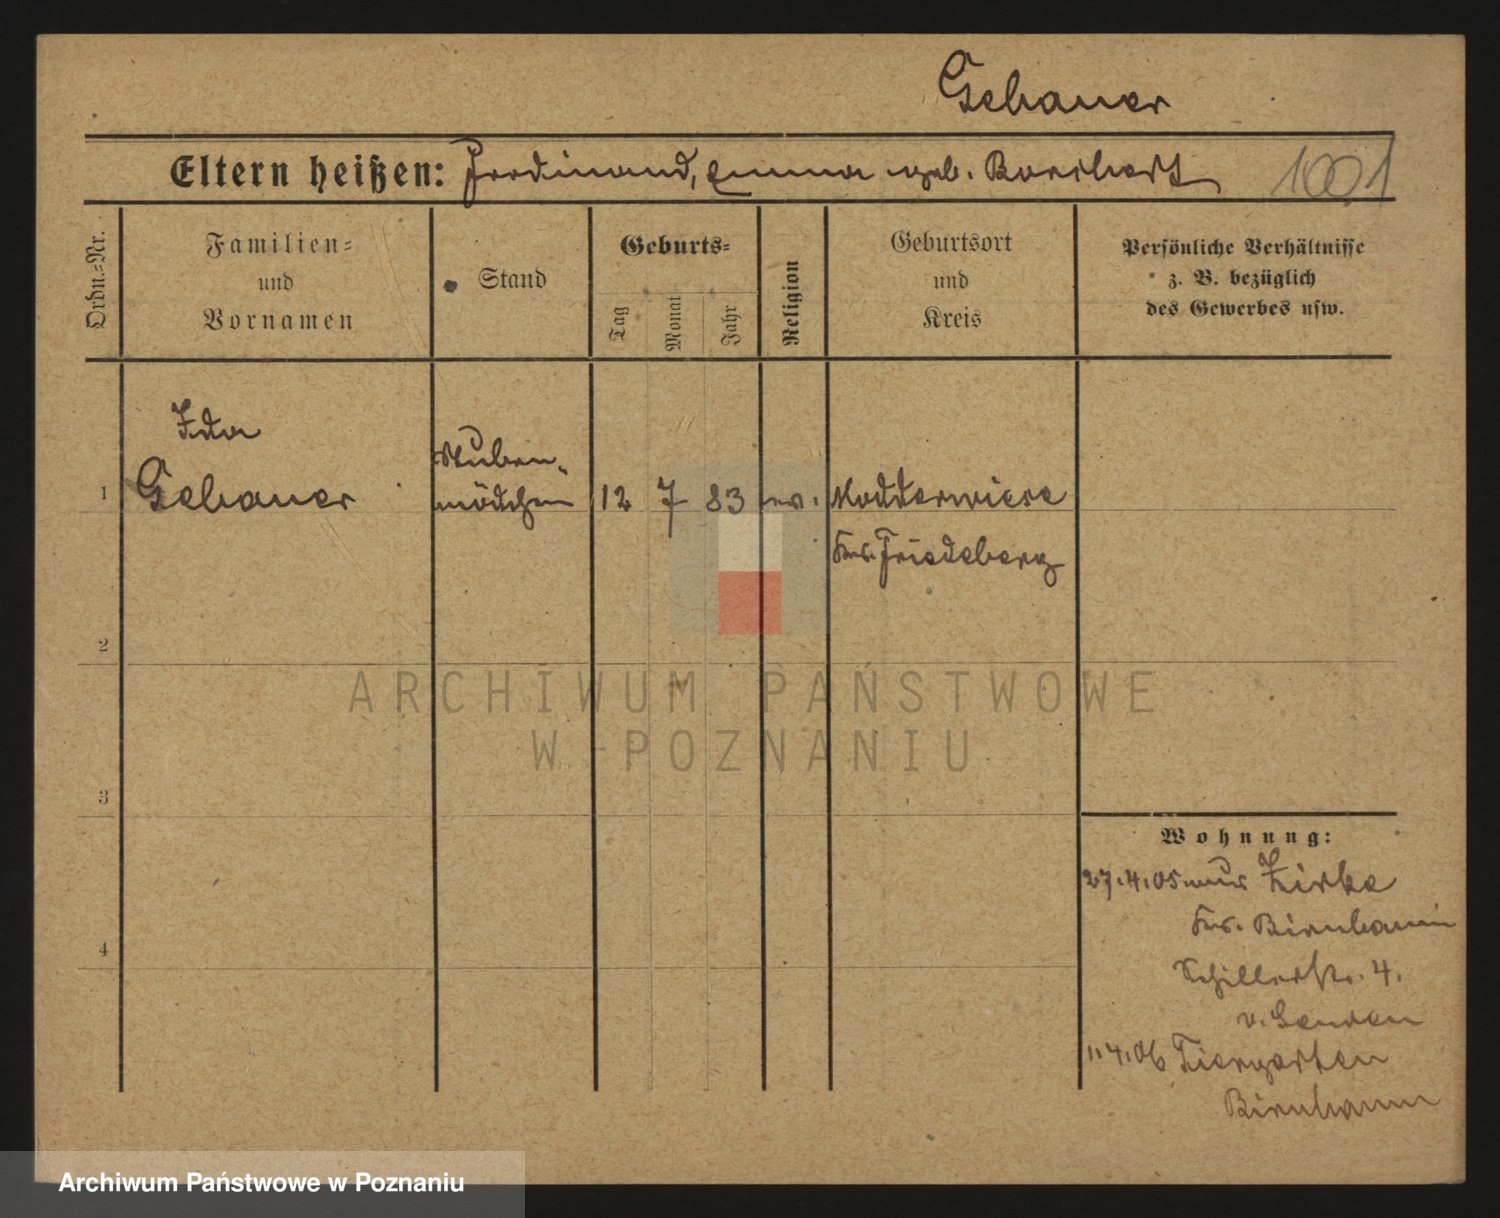 Gebauer
Eltern heißen: Ferdinand, Emma geb. Borchert 1001
Ordn.=Nr.
Familien=
und
Vornamen
Stand
Geburts=
Tag
Monat
Jahr
Religion
Geburtsort
und
Kreis
Persönliche Verhältnisse
z. B. bezüglich
des Gewerbes usw.
Ida
1 Gebauer
Stuben-
mädchen
12 7 83 ev.
Modderwiese
Krs. Friedeberg
2
3
4
Wohnung:
27.4.05 aus Zirke
Krs. Birnbaum
Schillerstr. 4.
v. Senden
1.4.06 Tiergarten
Birnbaum
ARCHIWUM PAŃSTWOWE
W POZNANIU
Archiwum Państwowe w Poznaniu